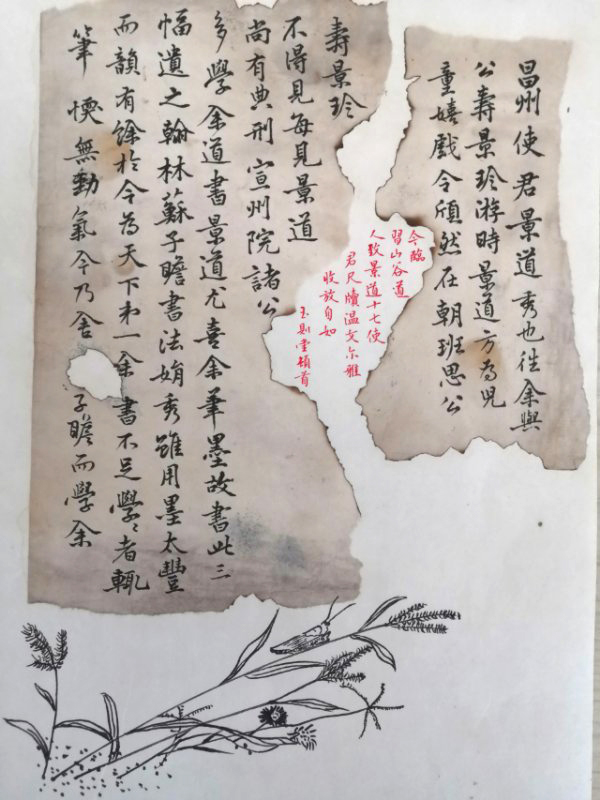 昌州使君景道秀也往余與
公壽景珍游時景道方為兒
童嬉戲今頎然在朝班思公
今臨
習山谷道
人致景道十七使
君尺牘溫文尔雅
收放自如
玉則堂頓首
壽景珍
不得見每見景道
尚有典刑宣州院諸公
多學余道書景道尤喜余筆墨故書此三
幅遺之翰林蘇子瞻書法娟秀雖用墨太豐
而韻有餘於今為天下弟一余書不足學〻者輒
筆愞無勁氣今乃舍子瞻而學余